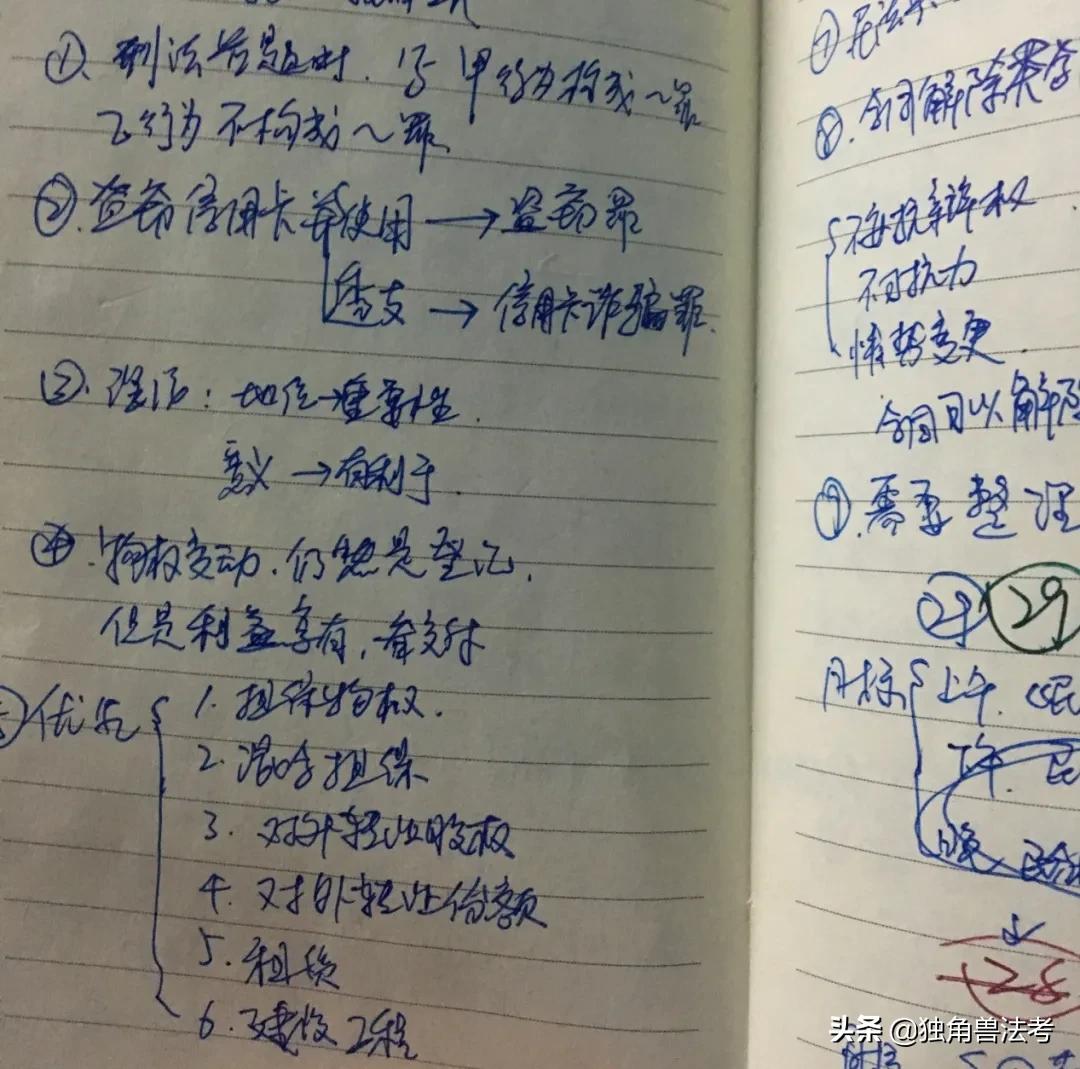 ①、刑法答题时，写甲行为构成~罪
乙行为不构成~罪
②、盗窃信用卡并使用→盗窃罪
透支→信用卡诈骗罪.
③、理论：地位→重要性.
意义→有利于.
④.物权变动.仍然是登记,
但是利益享有,看交付
优先
1.担保物权.
2.混合担保
3.对外转让股权
4.对外转让份额
5.租赁
6.建设工程
⑦民法
⑧.合同解除
不安抗辩权
不可抗力
情势变更
合同可以解除
⑨.需要整理
29
目标
上午.
下午.
晚
28
头条 @独角兽法考